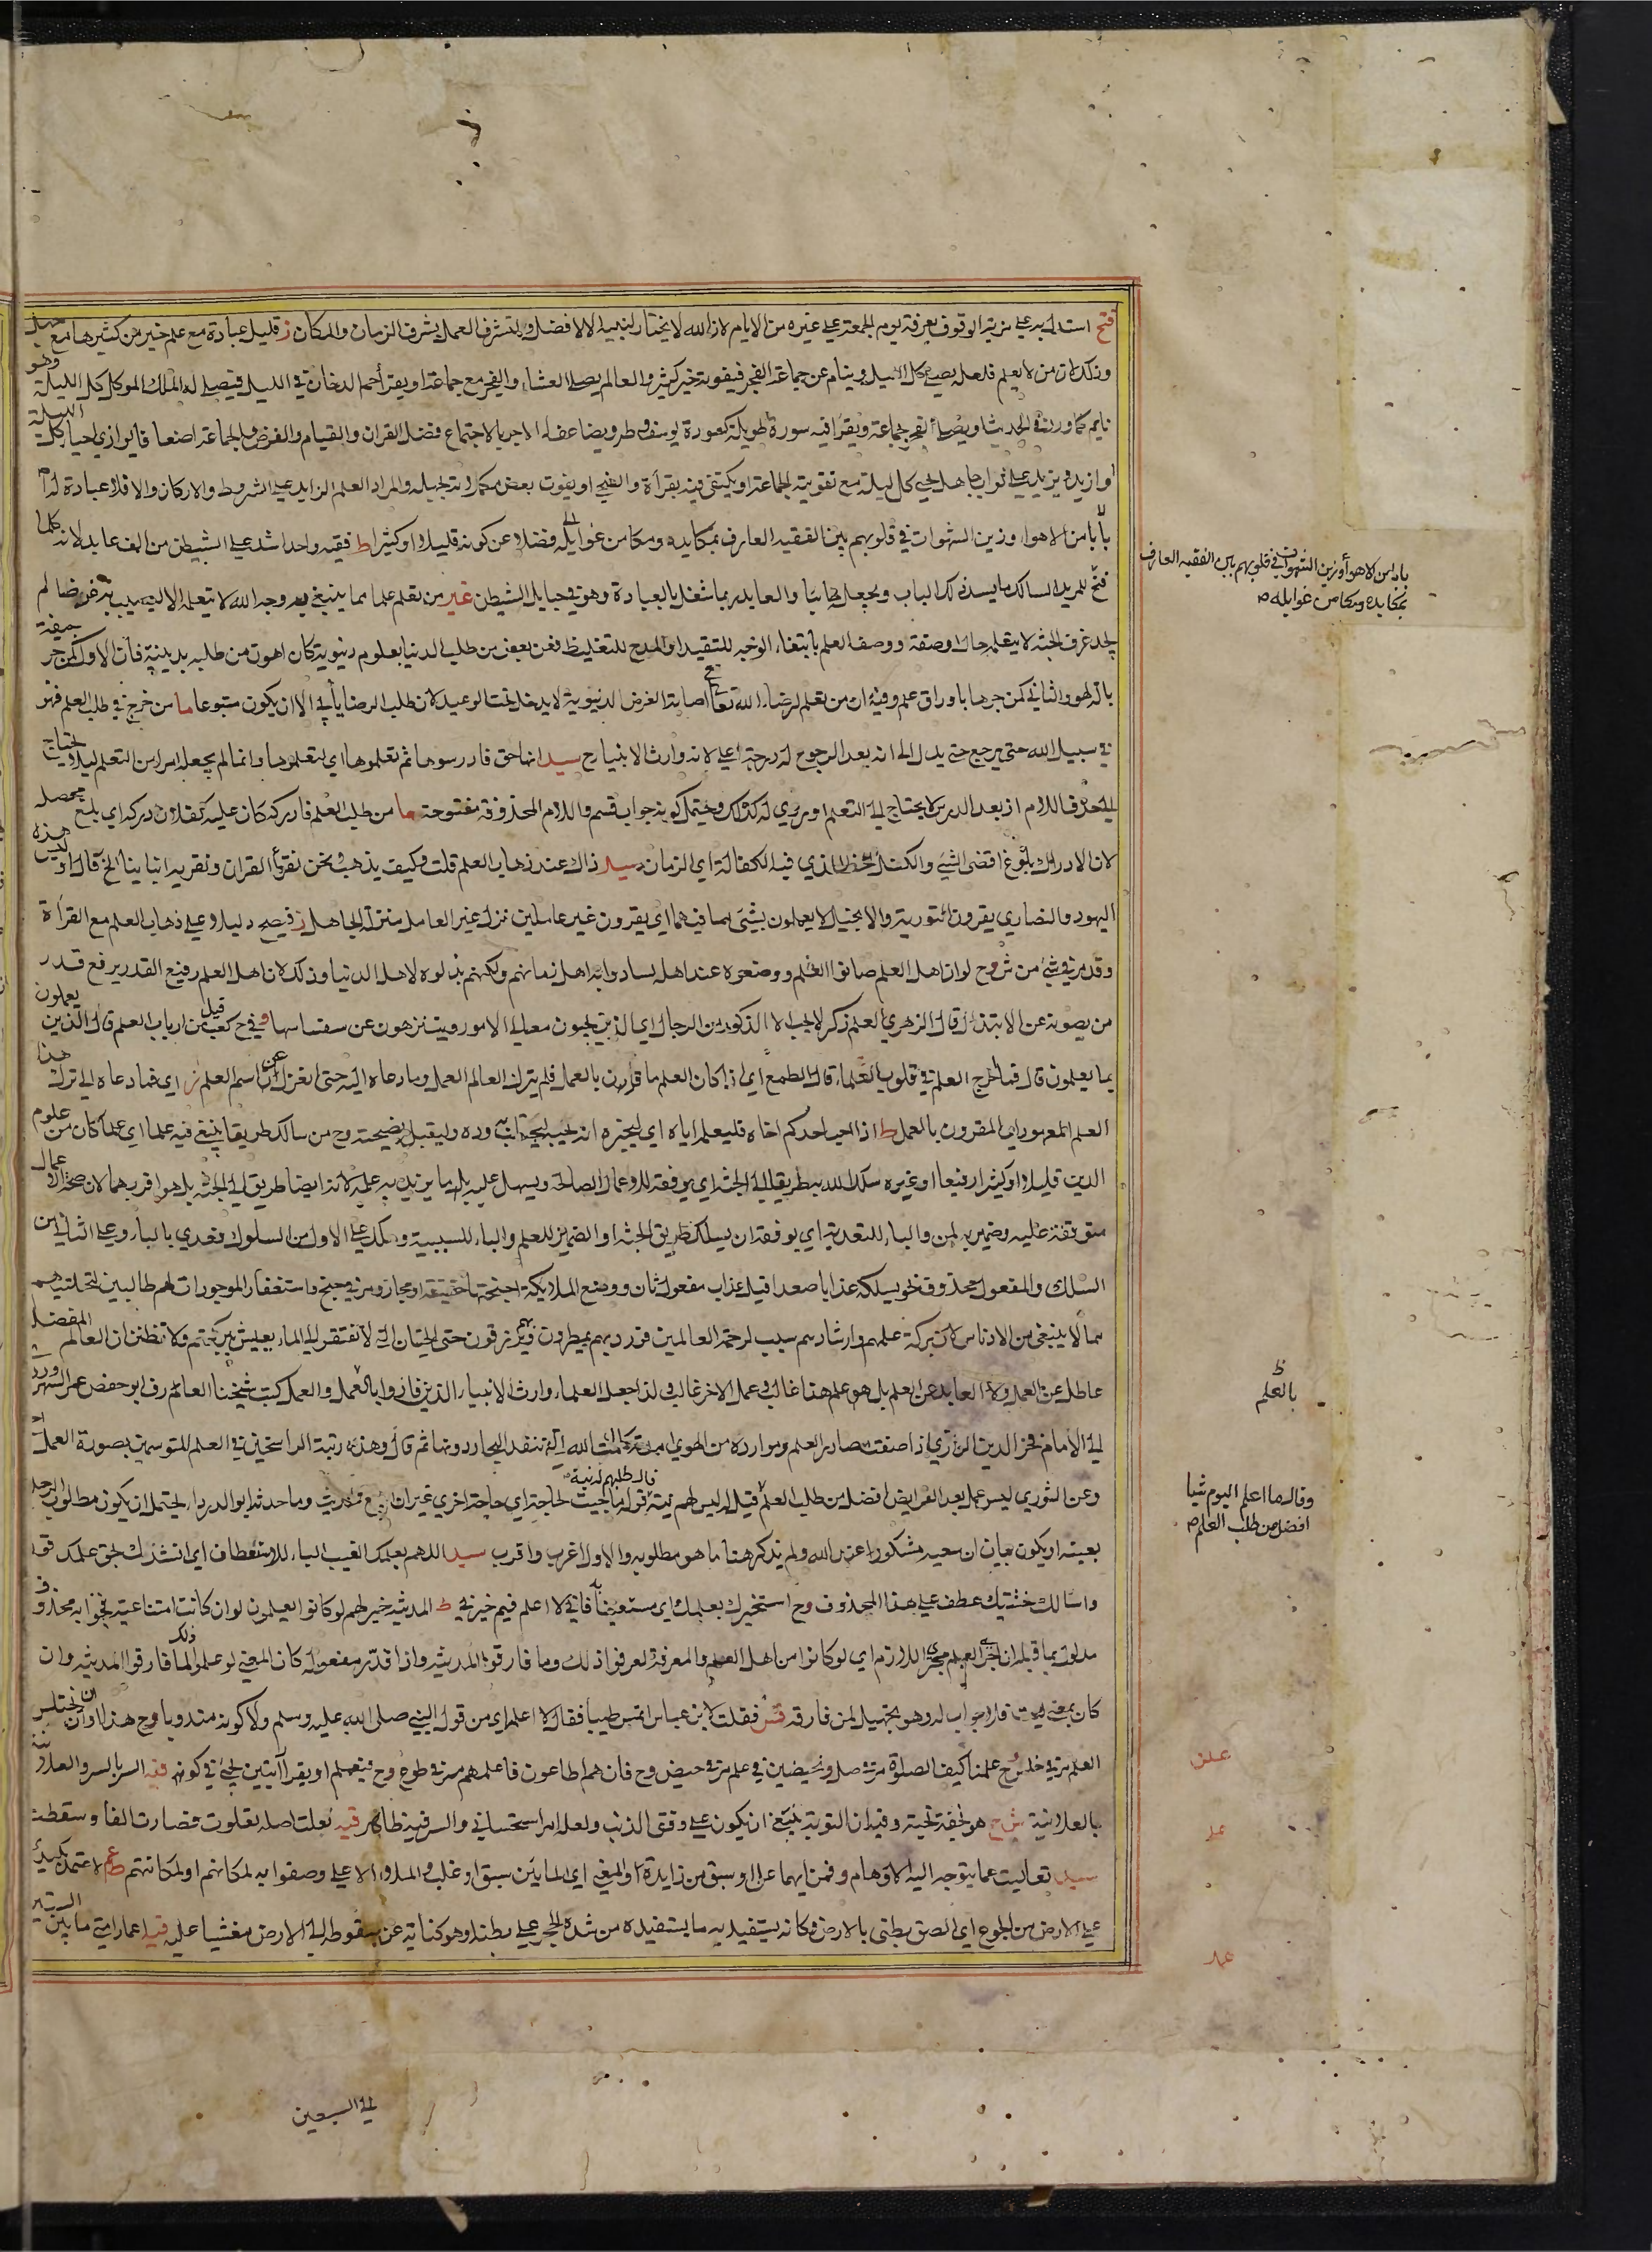 فتح استدل به على مزية الوقوف بعرفة يوم الجمعة على غيره من الايام لان الله لا يختار لنبيه الا الافضل وليتشرف العمل بشرف الزمان والمكان ز قليل عبادة مع علم خير من كثيرها مع جهل
وذلك ان من لا يعلم فلعله يصلي كل الليل وينام عن جماعة الفجر فيفوته خير كثير والعالم يصلي العشاء والفجر مع جماعة او يقرأ حم الدخان في الليل فيصلي له الملك الموكل كل الليلة وهو
نايم كما ورد في الحديث او يصلي الفجر بجماعة ويقرأ فيه سورة طويلة كسورة يوسف وطه ويضاعف له الاجر بالاجتماع فضل القران والقيام والفرض والجماعة اضعافا يوازي احيا كل الليلة
او ازيد ويزيد على ثواب جاهل يحيي كل ليلة مع تفويته الجماعة او يكتفي فيه بقرأة والضحى او يفوت بعض مكملاته لجهله والمراد العلم الزايد على الشروط والاركان والا فلا عبادة له
بابا من الاهوا وزين الشهوات في قلوبهم بين الفقيه العارف بمكايده ومكامن غوايله فضلا عن كونه قليلا او كثيرا ط فقيه واحد اشد على الشيطن من الف عابد لانه كلما
فتح للمريد السالك ما يسد ذلك الباب ويجعله خائبا والعابد ربما شغل بالعبادة وهو في حبايل الشيطن غير من تعلم علما مما ينبغي به وجه الله لا يتعلمه الا ليصيب به غرضا لم
يجد عرف الجنة لا يتعلمه حال او صفة ووصف العلم بابتغاء الوجه للتقييد او المدح للتغليظ فعن بعض من طلب الدنيا بعلوم دنيوية كان اهون من طلبه بدينية فان الاول كمن جر جيفة
بآلة لهو والثاني كمن جرها باوراق علم وفيه ان من تعلم لرضاء الله تعالى مع اصابة الغرض الدنيوية لا يدخل تحت الوعيد لان طلب الرضا يأبى الا ان يكون متبوعا ما من خرج في طلب العلم فهو
في سبيل الله حتى يرجع حتى يدل الى انه بعد الرجوع له درجة اعلى لانه وارث الانبيا ح سيد انها حق فادرسوها ثم تعلموها اي لتعلموها وانما لم يجعله امرا من التعلم ليلا يحتاج
الى حذف اللام اذ بعد الدرس لا يحتاج الى التعلم او مروي له كذلك ويحتمل كونه جواب قسم واللام المحذوفة مفتوحة ما من طلب العلم فادركه كان عليه كفلان دركه اي بلغ محصله
لان الادراك بلوغ اقصى الشيء والكفل الحظ الذي فيه الكفالة اي الزمان سيد ذاك عند ذهاب العلم قلت وكيف يذهب ونحن نقرأ القران ونقريه ابناءنا الخ قال او ليس هذه
اليهود والنصارى يقرون التورية والانجيل لا يعملون بشئ مما فيهما اي يقرون غير عاملين نزل غير العامل منزلة الجاهل ز فيصح دليلا على ذهاب العلم مع القرأة
وقد مر في شئ من شرح لو ان اهل العلم صانوا العلم ووضعوه عند اهله لسادوا به اهل زمانهم ولكنهم بذلوه لاهل الدنيا وذلك لان اهل العلم رفيع القدر يرفع قدر
من يصونه عن الابتذال قال الزهري العلم ذكر لا يحبه الا الذكور من الرجال اي الذين يحبون معالي الامور ويتنزهون عن سفسافها وفي ح كعب قيل من ارباب العلم قال الذين يعملون
بما يعلمون قال فما اخرج العلم في قلوب العلماء قال الطمع اي اذا كان العلم ما قارن بالعمل فلم يترك العالم العمل وما دعاه اليه حتى انعزل عن اسم العلم ز اي فما دعاه الى ترك هذا
العلم المعمور اي المقرون بالعمل ط اذا احب احدكم اخاه فليعلم اياه اي ليخبره انه يحبه ليجتلب به وده وليقبل نصيحته وح من سالك طريقا يبتغي فيه علما اي علما كان من علوم
الدين قليلا او كثيرا رفيعا او غيره سلك الله به طريقا الى الجنة اي يوفقه للاعمال الصالحة ويسهل عليه بل ما يزيد به علمه لانه ايضا طريق الى الجنة بل هو اقربهما لان صحة الاعمال
متوقفة عليه وضمير به لمن والباء للتعدية اي يوفقه ان يسلك طريق الجنة او الضمير للعلم والباء للسببية وسلك على الاول من السلوك فعدي بالباء وعلى الثاني من
السلك والمفعول محذوف نحو يسلكه عذابا صعدا قيل عذاب مفعول ثان ووضع الملايكة اجنحتها حقيقة او مجاز ومر في جنح واستغفار الموجودات لهم طالبين لتخليتهم
مما لا ينبغي من الادناس لان بركة علمهم وارشادهم سبب لرحمة العالمين فردد بهم يمطرون وبهم يرزقون حتى الحيتان التي لا تفتقر الى الماء يعيش ببركتهم ولا تظنن ان العالم المفضل
عاطل عن العمل ولا العابد عن العلم بل هو علم هذا غالب وعمل الاخر غالب ولذا جعل العلماء وارث الانبياء الذين فازوا بالعمل والعمل كتب شيخنا العالم رف ابو حفص عمر السهروردي
الى الامام فخر الدين الرازي اذا صفت مصادر العلم وموارده من الهوى امدته كلمات الله التي تنفد البحار دونها ثم قال وهذه رتبة الراسخين في العلم المتوسمين بصورة العمل
وعن الثوري ليس عمل بعد الفرايض افضل من طلب العلم قيل له ليس لهم نية قال طلبهم له نية قوله ما جيت لحاجة اي حاجة اخرى غير ان اسمع حديث وما حدثه ابو الدرداء يحتمل ان يكون مطلوب الرجل
بعينه او يكون بيان ان سعيه مشكور عند الله ولم يذكر هنا ما هو مطلوبه والاول اغرب واقرب سيد اللهم بعلمك الغيب الباء للاستعطاف اي انشدك بحق علمك قوله
واسالك خشيتك عطف على هذا المحذوف وح استخيرك بعلمك اي مستعينا فاني لا اعلم فيم خيرتي ط المدينة خير لهم لو كانوا يعلمون لو ان كانت امتناعية فجوابه محذوف
مدلول بما قبله ان اجري العلم مجرى اللازم اي لو كانوا من اهل العلم والمعرفة لعرفوا ذلك وما فارقوا المدينة واذا قدر مفعوله كان المعنى لو علموا ذلك لما فارقوا المدينة وان
كان بمعنى ليت فلا جواب له وهو تجهيل لمن فارقه قس فقلت لابن عباس اتمس طيبا فقال لا اعلم اي من قول النبي صلى الله عليه وسلم ولا كونه مندوبا وح هذا اوان ان يختلس
العلم مر في خلس وح علمنا كيف الصلوة مر في صل وتحيضين في علم مر في حيض وح فان هم اطاعون فاعلمهم مر في طوع وح فيتعلم او يقرأ آيتين يجئ في كون فيه السر بالسر والعلانية
بالعلانية ش ح هو بخفة تحتية وفيه ان التوبة ينبغي ان يكون على وفق الذنب ولعله امر استحساني والسر فيه ظاهر فيه تعلت اصله تعلوت فصارت الفا وسقطت
سيد تعاليت عما يتوجه اليه الاوهام وفمن ايهما علا او سبق من زايدة او المعنى اي المايين سبق او غلب والملاو الاعلى وصفوا به لمكانهم او لمكانتهم ط لاعتمد بكبدي
على الارض من الجوع اي الصق بطني بالارض وكانه يستفيد به ما يستفيده من شدة الحجر على بطنه او هو كناية عن سقوطه الى الارض مغشيا عليه فيه اعمار امتي ما بين الستين
بابا من الاهوأ وزين الشهوات في قلوبهم بين الفقيه العارف
بمكايده ومكامن غوايله ص
ظ
بالعلم
وقال ما اعلم اليوم شيا
افضل من طلب العلم ص
علن
علا
عمد
الى السبعين